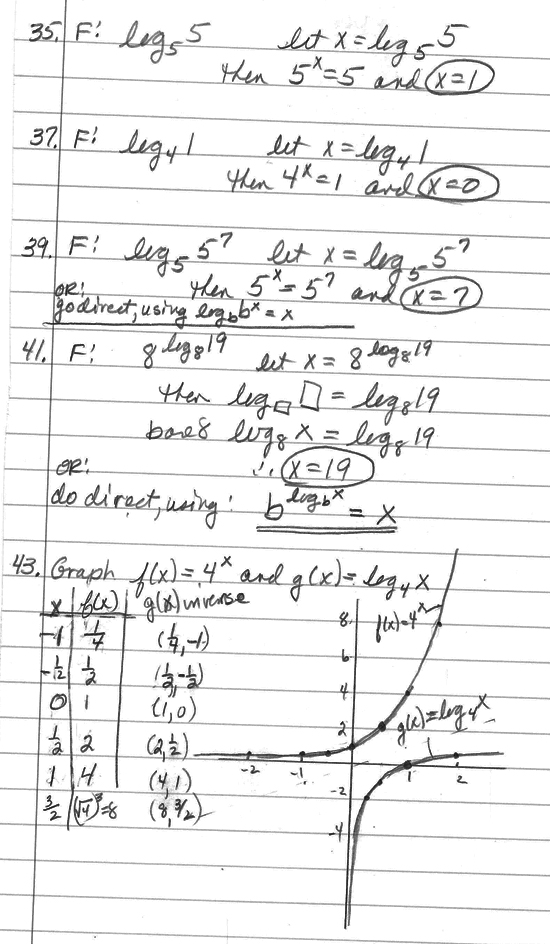 35. F: log₅5 let x = log₅5
then 5ˣ = 5 and x = 1
37. F: log₄1 let x = log₄1
then 4ˣ = 1 and x = 0
39. F: log₅5⁷ let x = log₅5⁷
OR: then 5ˣ = 5⁷ and x = 7
go direct, using log_b bˣ = x
41. F: 8^(log₈19) let x = 8^(log₈19)
then log_□ □ = log₈19
base 8 log₈x = log₈19
OR: ∴ x = 19
do direct, using: b^(log_b x) = x
43. Graph f(x) = 4ˣ and g(x) = log₄x
x f(x) g(x) inverse
-1 1/4 (1/4, -1)
-1/2 1/2 (1/2, -1/2)
0 1 (1, 0)
1/2 2 (2, 1/2)
1 4 (4, 1)
3/2 (√4)³=8 (8, 3/2)
8 f(x)=4ˣ
6
4
2 g(x)=log₄x
-2 -1 1 2
-2
-4